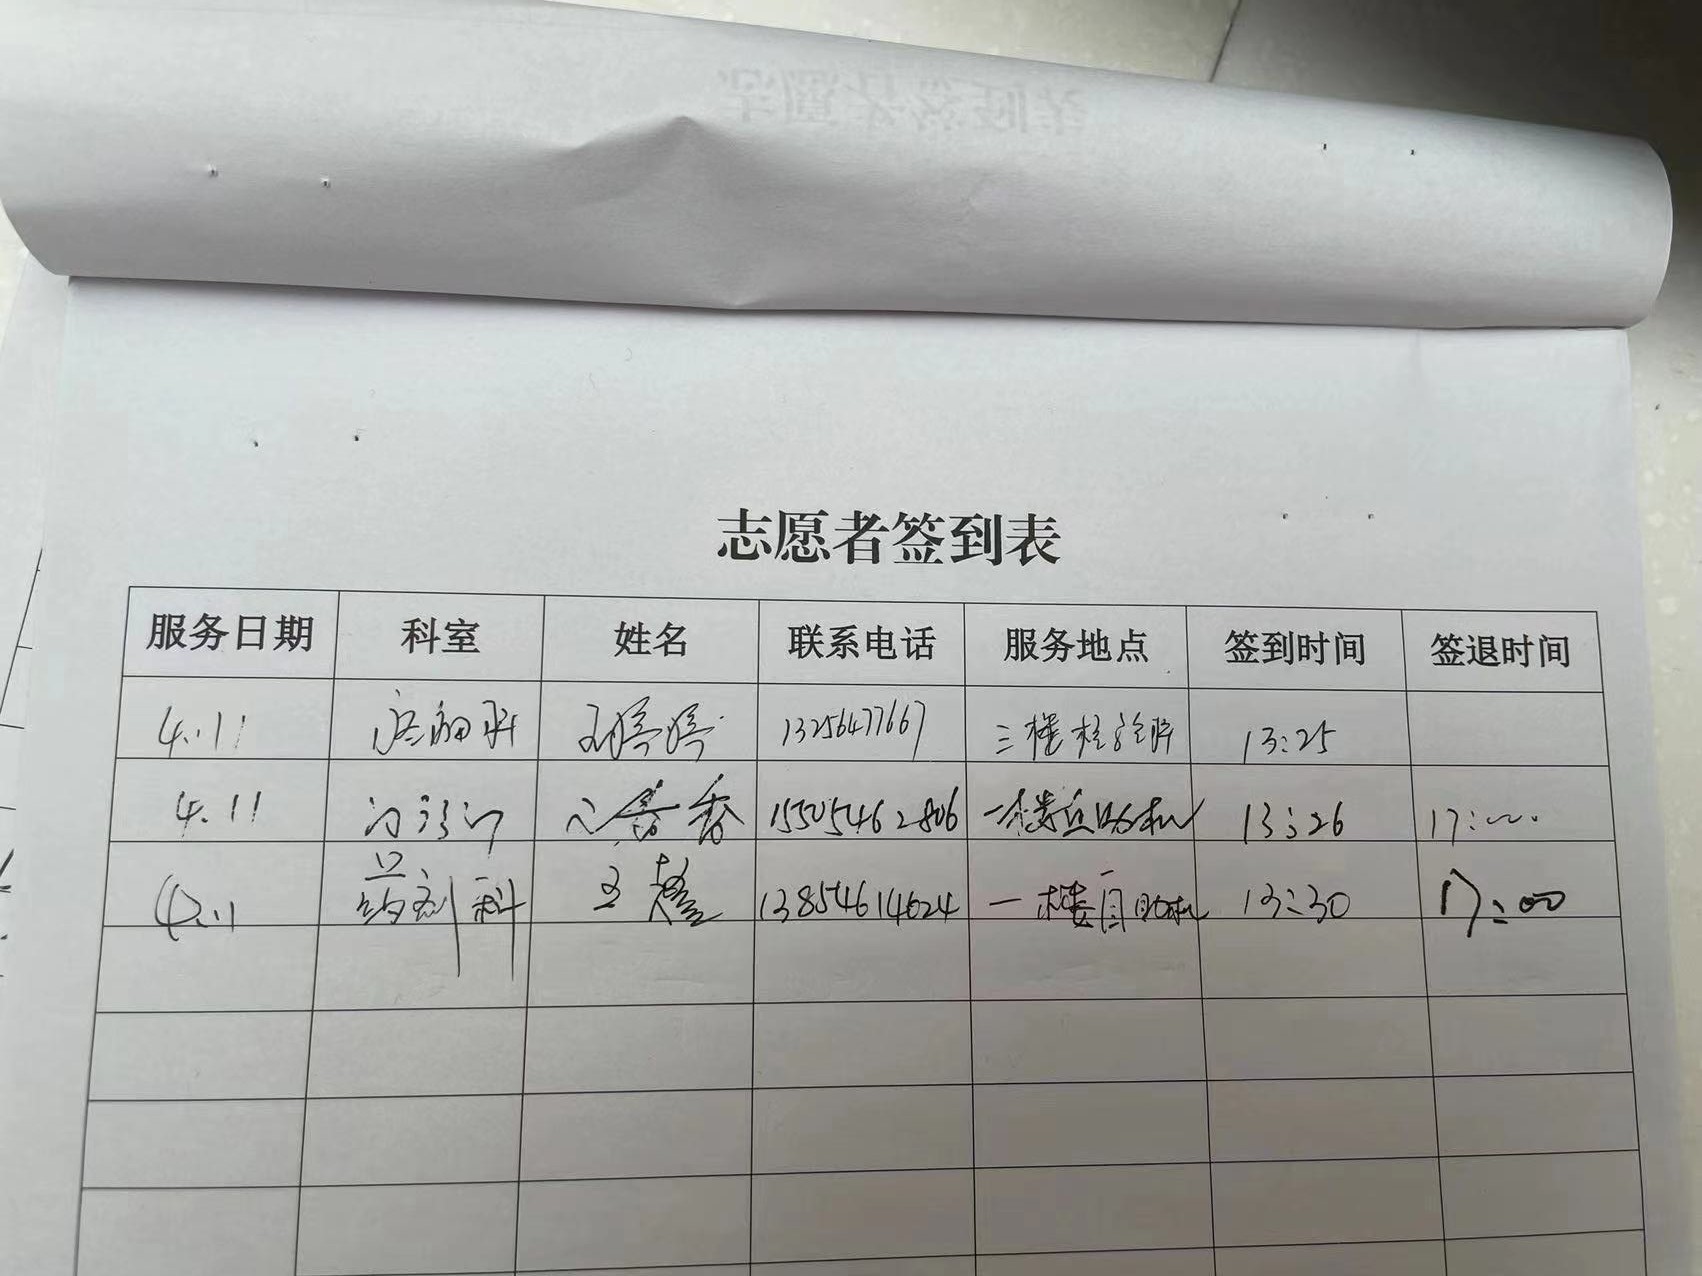 志愿者签到表
服务日期 科室 姓名 联系电话 服务地点 签到时间 签退时间
4.11 王婷婷 13256477667 三楼 13:25
4.11 15505462806 一楼自助机 13:26 17:
4.11 药剂科 王 13854614624 一楼自助机 13:30 17:00